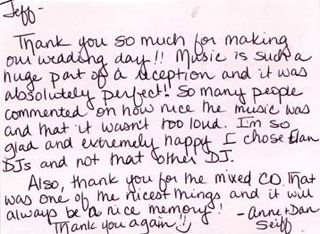 Jeff-
Thank you so much for making
our wedding day!! Music is such a
huge part of a reception and it was
absolutely perfect! So many people
commented on how nice the music was
and that it wasn't too loud. I'm so
glad and extremely happy I chose Elan
DJs and not that other DJ.
Also, thank you for the mixed CD. That
was one of the nicest things and it will
always be a nice memory! -Anne+Dan
Thank you again!! Seiff